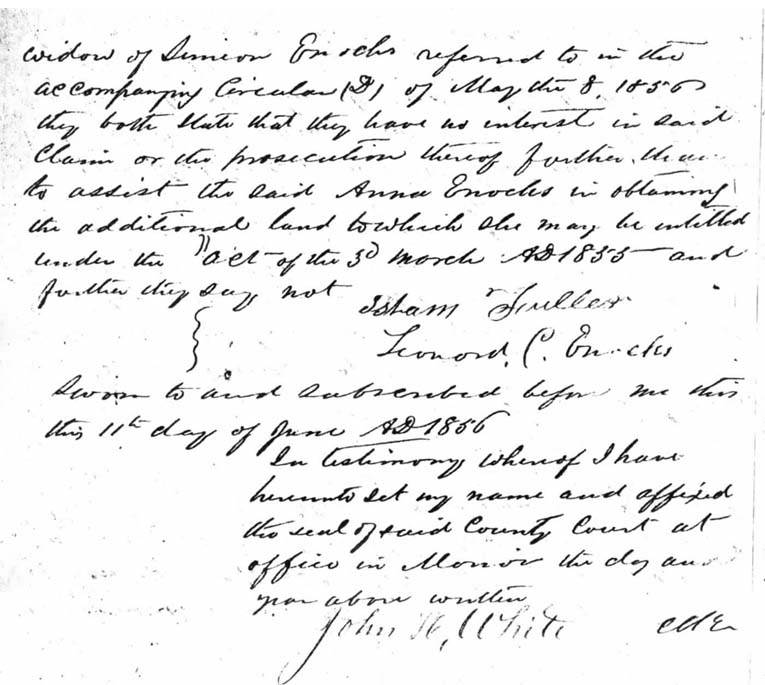 widow of Simeon Enochs referred to in the
accompanying Circular (D) of May the 8, 1856
they both state that they have no interest in said
Claim or the prosecution thereof further than
to assist the said Anna Enochs in obtaining
the additional land to which she may be intitled
under the "act of the 3d march AD 1855 and
further they say not
Isham Fuller
Leonord, C. Enochs
Sworn to and subscribed before me this
this 11th day of June AD 1856
In testimony whereof I have
hereunto set my name and affixed
the seal of said County Court at
office in the day and
year above written
John H, White